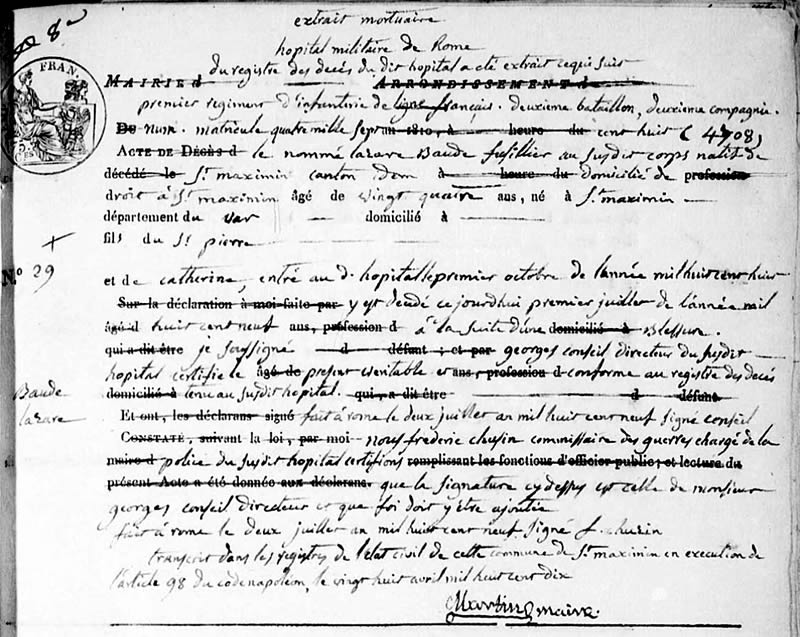 8e
extrait mortuaire
hopital militaire de Rome
du registre des decés du dit hopital a eté extrait cequi suit
FRAN.
MAIRIE d ARRONDISSEMENT d
premier regiment d'infanterie de ligne français. deuxieme bataillon, deuxieme compagnie.
Du num. matricule quatre mille sept an 1810, à heure du cent huit (4708)
ACTE DE DÉCÈS d le nommé lazare Baude fusillier au susdit corps natif de
décédé le St maximin canton idem à heure du domicilié de profession
droit à St maximin âgé de vingt quatre ans, né à St maximin
département du var domicilié à
fils du St pierre
N° 29
et de catherine, entré au d. hopital le premier octobre de l'année mil huit cent huit
Sur la déclaration à moi faite par y est decedé cejourdhui premier juillet de l'année mil
âgé d huit cent neuf ans, profession d à la suite d'une domicilié à Blessure.
qui a dit être je soussigné d défunt ; et par georges conseil directeur du susdit
hopital certifie le âgé de present veritable et ans, profession d conforme au registre des decés
Baude
lazare
domicilié à tenu au susdit hopital. qui, a dit être d défunt
Et ont, les déclarans signé fait à rome le deux juillet an mil huit cent neuf signé conseil
CONSTATÉ, suivant la loi, par moi nous frederic chusin commissaire des guerres chargé de la
maire d police du susdit hopital certifions remplissant les fonctions d'officier public; et lecture du
présent Acte a été donnée aux déclarans. que la signature cy dessus est celle de monsieur
georges conseil directeur et que foi doit y être ajoutée
fait à rome le deux juillet an mil huit cent neuf. signé f. chusin
transcrit dans les registres de l'etat civil de cette commune de St maximin en execution de
l'article 98 du code napoléon, le vingt huit avril mil huit cent dix
Martin maire.